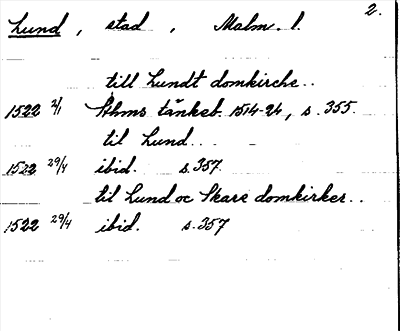 2.
Lund, stad, Malm. l.
till Lundt domkirche..
1522 2/1 Sthms tänkeb. 1514-24, s. 355.
til Lund..
1522 29/4 ibid. s. 357
til Lund oc Skare domkirker..
1522 29/4 ibid. s. 357